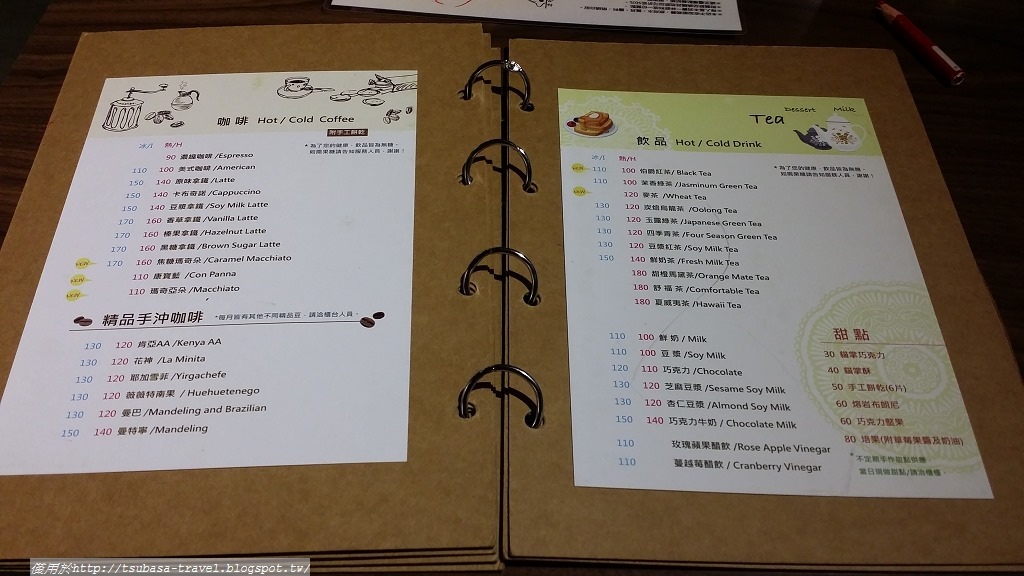 咖啡 Hot / Cold Coffee
附手工餅乾
*為了您的健康，飲品皆為無糖，
如需果糖請告知服務人員，謝謝！
冰/I 熱/H
90 濃縮咖啡 /Espresso
110 100 美式咖啡 /American
150 140 原味拿鐵 /Latte
150 140 卡布奇諾 /Cappuccino
150 140 豆漿拿鐵 /Soy Milk Latte
170 160 香草拿鐵 /Vanilla Latte
170 160 榛果拿鐵 /Hazelnut Latte
170 160 黑糖拿鐵 /Brown Sugar Latte
170 160 焦糖瑪奇朵 /Caramel Macchiato
110 康寶藍 /Con Panna
110 瑪奇亞朵 /Macchiato
精品手沖咖啡 *每月皆有其他不同精品豆，請洽櫃台人員。
130 120 肯亞AA /Kenya AA
130 120 花神 /La Minita
130 120 耶加雪菲 /Yirgachefe
130 120 薇薇特南果 / Huehuetenego
130 120 曼巴 /Mandeling and Brazilian
150 140 曼特寧 /Mandeling
Dessert Milk
Tea
飲品 Hot / Cold Drink
*為了您的健康，飲品皆為無糖，
如需果糖請告知服務人員，謝謝！
冰/I 熱/H
110 100 伯爵紅茶/ Black Tea
110 100 茉香綠茶 /Jasminum Green Tea
120 麥茶 /Wheat Tea
130 120 炭焙烏龍茶 /Oolong Tea
130 120 玉露綠茶 /Japanese Green Tea
130 120 四季青茶 /Four Season Green Tea
130 120 豆漿紅茶 /Soy Milk Tea
150 140 鮮奶茶 /Fresh Milk Tea
180 甜橙馬黛茶/Orange Mate Tea
180 舒福茶 /Comfortable Tea
180 夏威夷茶 /Hawaii Tea
110 100 鮮奶 / Milk
110 100 豆漿 /Soy Milk
120 110 巧克力 /Chocolate
130 120 芝麻豆漿 /Sesame Soy Milk
130 120 杏仁豆漿 /Almond Soy Milk
150 140 巧克力牛奶 / Chocolate Milk
110 玫瑰蘋果醋飲 /Rose Apple Vinegar
110 蔓越莓醋飲 / Cranberry Vinegar
甜點
30 貓掌巧克力
40 貓掌酥
50 手工餅乾(6片)
60 熔岩布朗尼
60 巧克力堅果
80 塔果(附草莓果醬及奶油)
*不定期手作甜點供應
當日現做甜點/請洽櫃檯
僅用於http://tsubasa-travel.blogspot.tw/